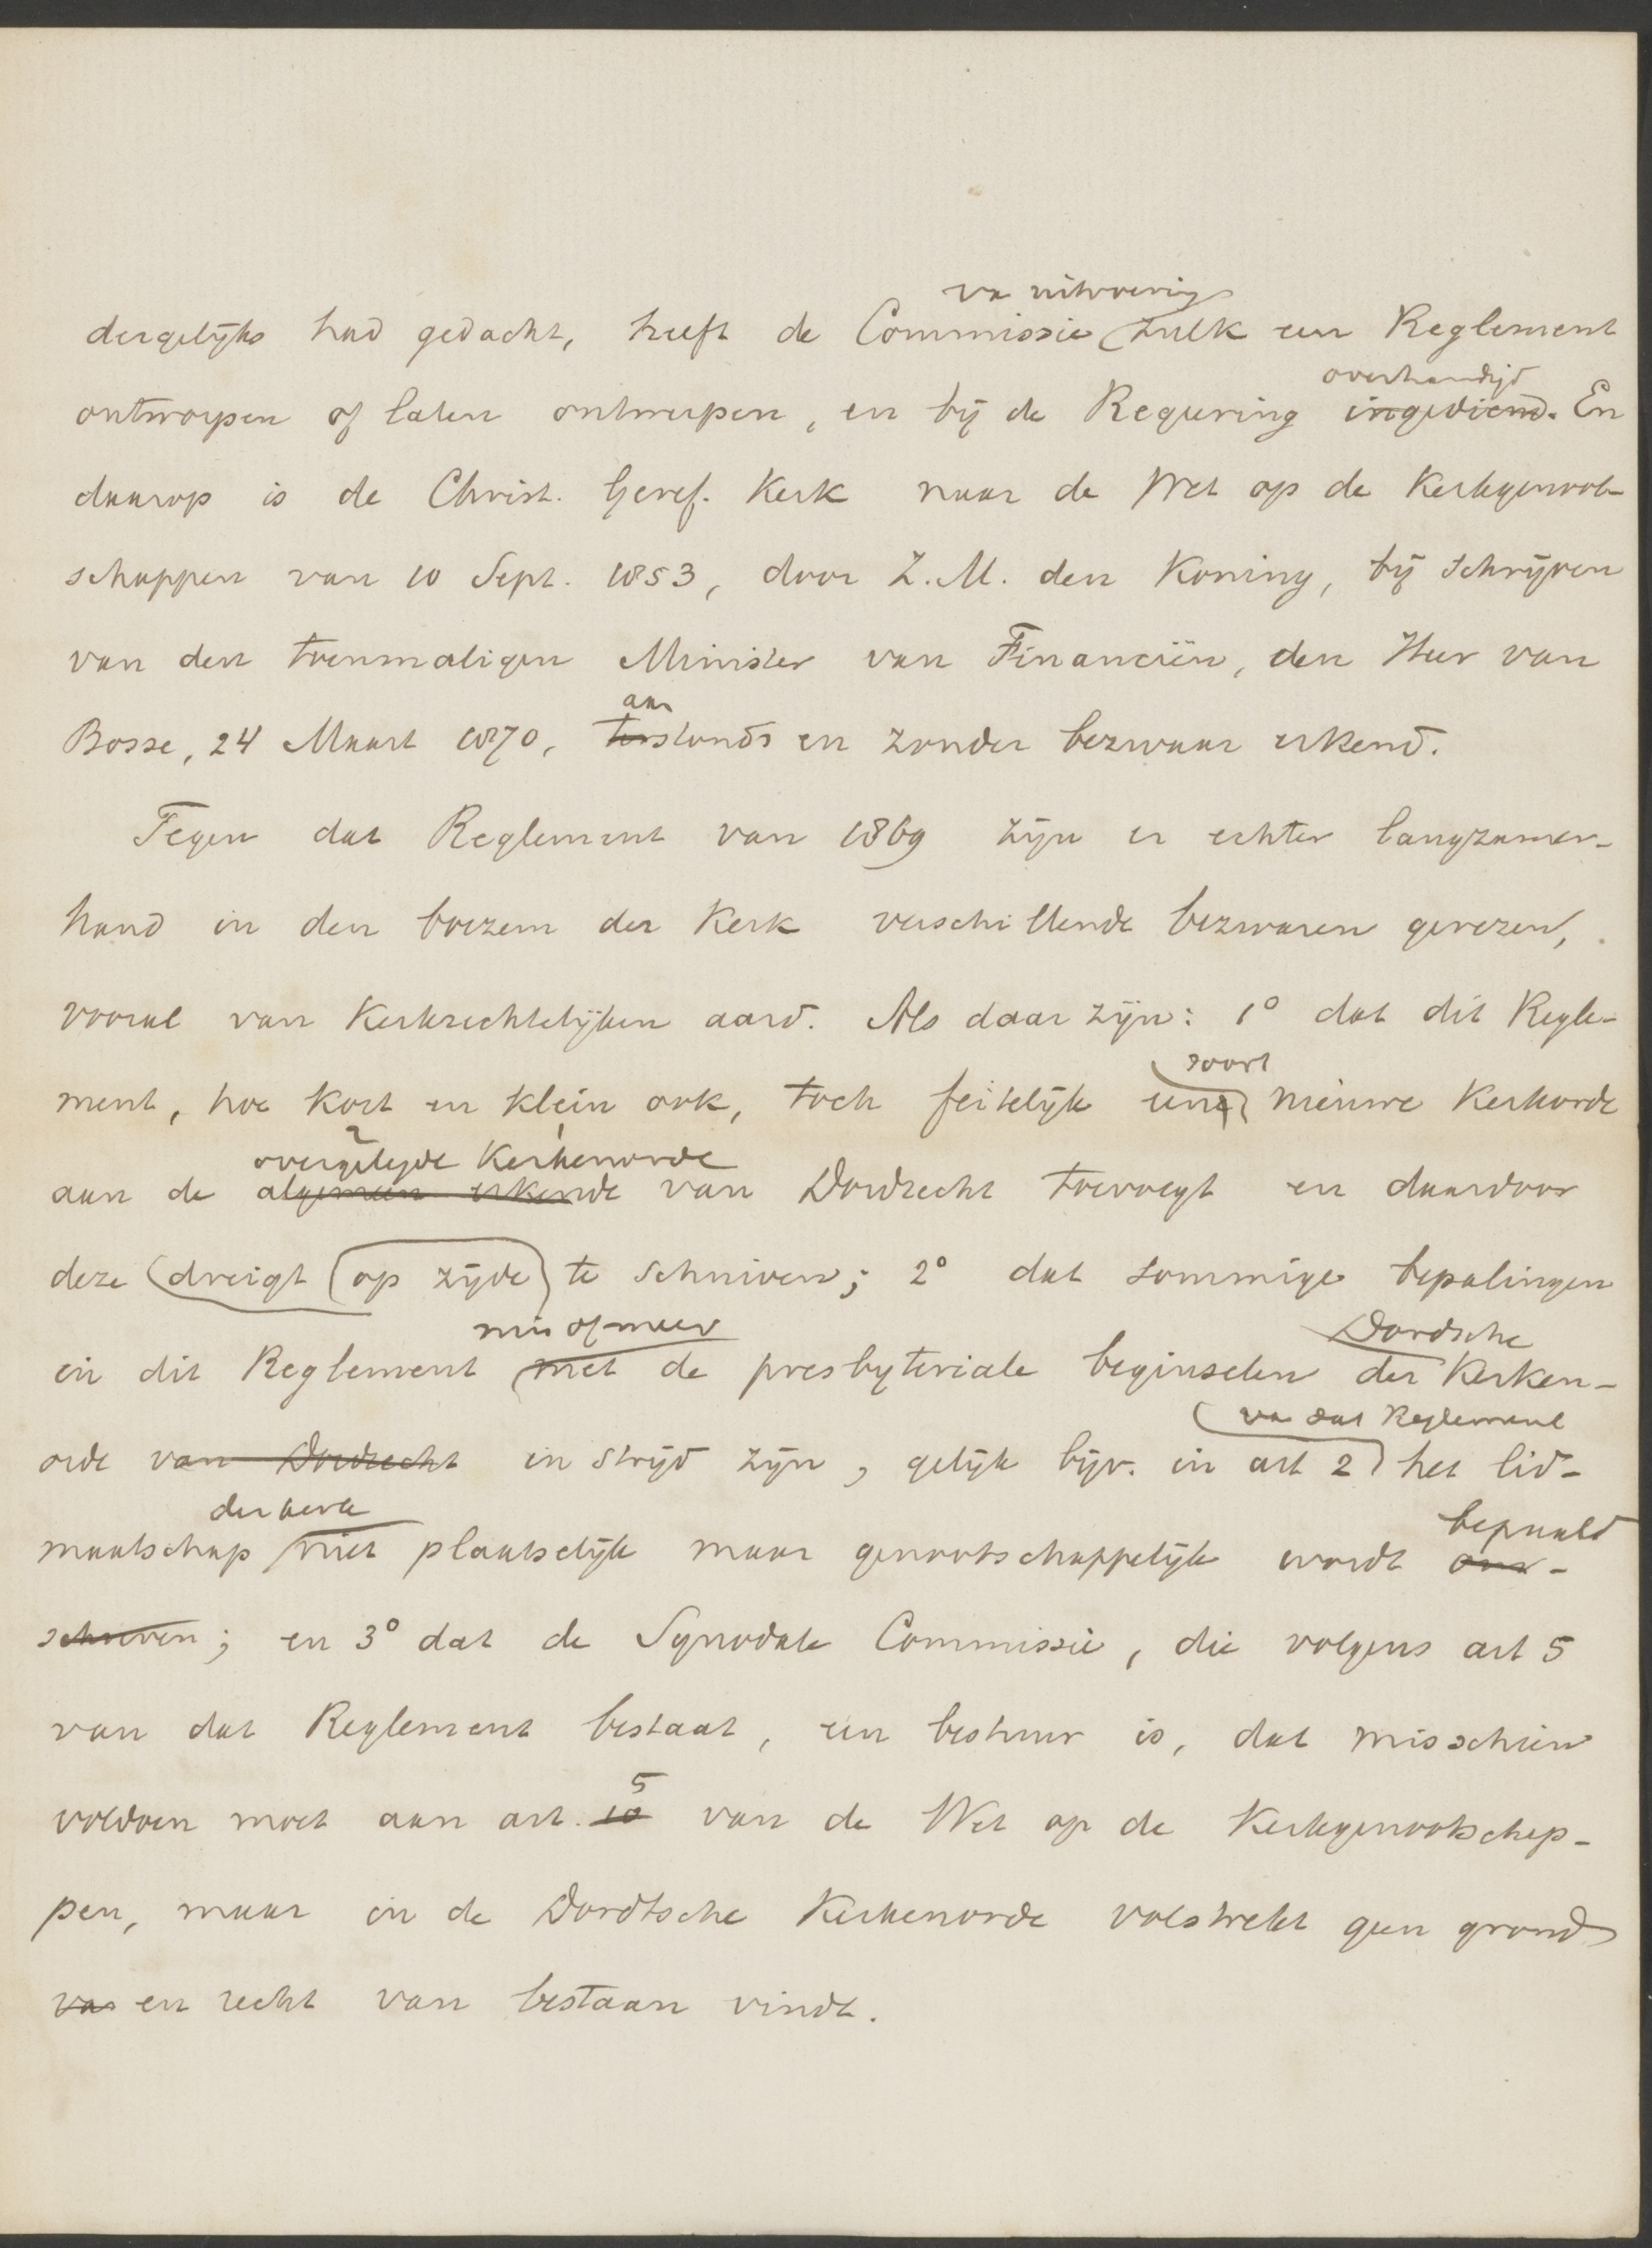 va uitvoering
dergelijks had gedacht, heeft de Commissie zulk een Reglement
overhandigd
ontworpen of laten ontwerpen, en bij de Regeering ingediend. En
daarop is de Christ. Geref. Kerk naar de Wet op de Kerkgenoot-
schappen van 10 Sept. 1853, door Z.M. den Koning, bij schrijven
van den toenmaligen Minister van Financiën, den Heer van
aan
Bosse, 24 Maart 1870, terstonds en zonder bezwaar erkend.
Tegen dat Reglement van 1869 zijn er echter langzamer-
hand in den boezem der Kerk verschillende bezwaren gerezen,
vooral van Kerkrechtelijken aard. Als daar zijn: 1° dat dit Regle-
soort
ment, hoe kort en klein ook, toch feitelijk eene nieuwe Kerkorde
overgelegde Kerkenorde
aan de algemeen erkende van Dordrecht toevoegt en daardoor
deze dreigt op zijde te schuiven; 2° dat sommige bepalingen
min of meer Dordsche
in dit Reglement met de presbyteriale beginselen der Kerken-
va dat Reglement
orde van Dordrecht in strijd zijn, gelijk bijv. in art 2 het lid-
der kerk bepaald
maatschap niet plaatselijk maar genootschappelijk wordt om-
schreven; en 3° dat de Synodale Commissie, die volgens art 5
van dat Reglement bestaat, een bestuur is, dat misschien
5
voldoen moet aan art. 10 van de Wet op de Kerkgenootschap-
pen, maar in de Dordtsche Kerkenorde volstrekt geen grond
van en recht van bestaan vindt.